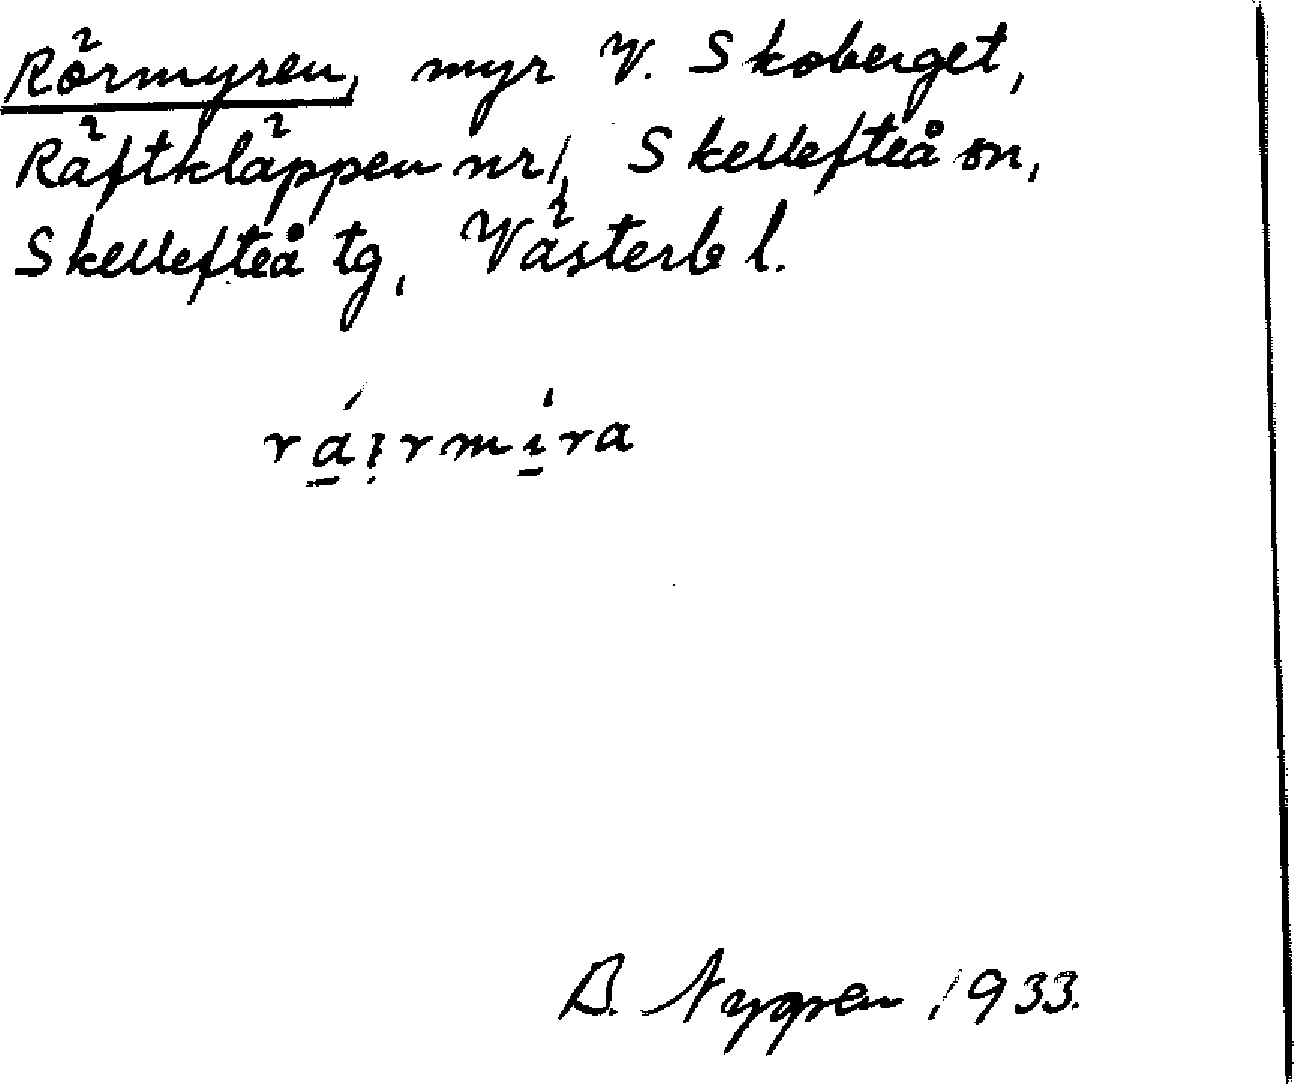 Rörmyren, myr V. Skoberget,
Räftkläppen nr 1, Skellefteå sn,
Skellefteå tg, Västerb l.
rá̱ːrmi̱ra
B. Nygren 1933.